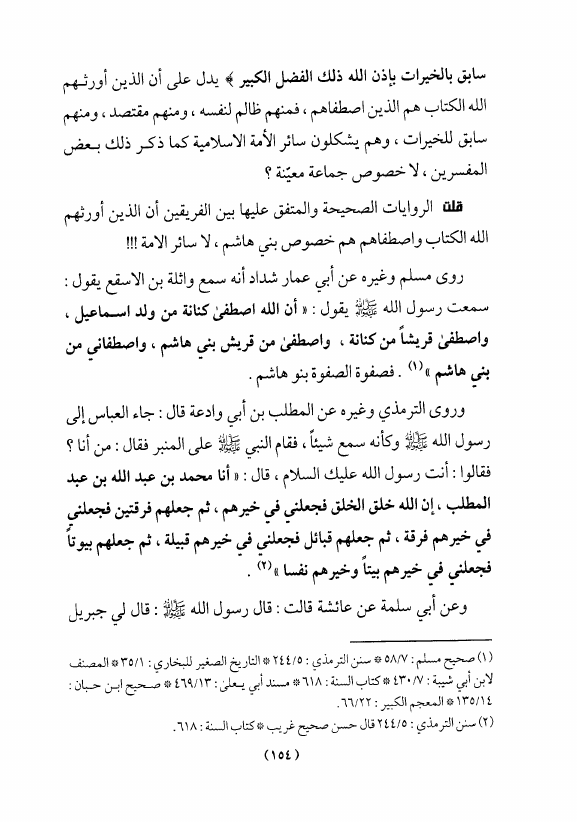 سابق بالخيرات بإذن الله ذلك الفضل الكبير ﴾ يدل على أن الذين أورثـهم
الله الكتاب هم الذين اصطفاهم ، فمنهم ظالم لنفسه ، ومنهم مقتصد ، ومنهم
سابق للخيرات ، وهم يشكلون سائر الأمة الاسلامية كما ذكـر ذلك بـعض
المفسرين ، لا خصوص جماعة معيّنة ؟
قلت الروايات الصحيحة والمتفق عليها بين الفريقين أن الذين أورثهم
الله الكتاب واصطفاهم هم خصوص بني هاشم ، لا سائر الامة !!!
روى مسلم وغيره عن أبي عمار شداد أنه سمع واثلة بن الاسقع يقول :
سمعت رسول الله ﷺ يقول : « أن الله اصطفىٰ كنانة من ولد اسـماعيل ،
واصطفىٰ قريشاً من كنانة ، واصطفىٰ من قريش بني هاشم ، واصطفاني من
بني هاشم »(١) . فصفوة الصفوة بنو هاشم .
وروى الترمذي وغيره عن المطلب بن أبي وادعة قال : جاء العباس إلى
رسول الله ﷺ وكأنه سمع شيئاً ، فقام النبي ﷺ على المنبر فقال : من أنا ؟
فقالوا : أنت رسول الله عليك السلام ، قال : « أنا محمد بن عبد الله بن عبد
المطلب ، إن الله خلق الخلق فجعلني في خيرهم ، ثم جعلهم فرقتين فجعلني
في خيرهم فرقة ، ثم جعلهم قبائل فجعلني في خيرهم قبيلة ، ثم جعلهم بيوتاً
فجعلني في خيرهم بيتاً وخيرهم نفسا »(٢) .
وعن أبي سلمة عن عائشة قالت : قال رسول الله ﷺ : قال لي جبريل
(١) صحيح مسلم : ٥٨/٧ * سنن الترمذي : ٢٤٤/٥ * التاريخ الصغير للبخاري : ٣٥/١ * المصنف
لابن أبي شيبة : ٤٣٠/٧ * كتاب السنة : ٦١٨ * مسند أبي يـعلىٰ : ٤٦٩/١٣ * صـحيح ابـن حـبان :
١٣٥/١٤ * المعجم الكبير : ٦٦/٢٢.
(٢) سنن الترمذي : ٢٤٤/٥ قال حسن صحيح غريب * كتاب السنة : ٦١٨.
(١٥٤)